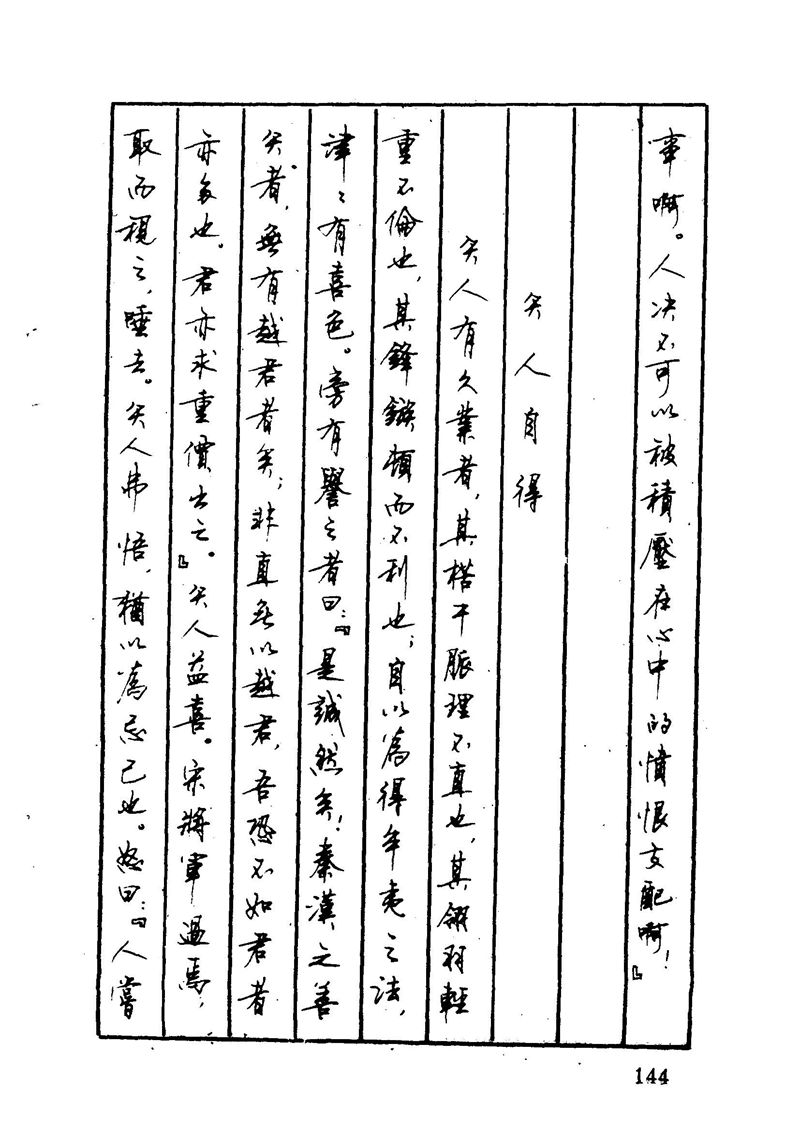 事啊。人决不可以被積壓在心中的憤恨支配啊！』
矢人自得
矢人有久業者，其楛干脈理不直也，其翎羽輕
重不倫也，其鋒鏃頓而不利也；自以為得牟夷之法，
津〻有喜色。旁有譽之者曰：『是誠然矣！秦漢之善
矢者，無有越君者矣；非直無以越君，吾恐不如君者
亦多也。君亦求重價出之。』矢人益喜。宋將軍過焉，
取而視之，唾去。矢人弗悟，猶以為忌己也。怒曰：『人嘗
144